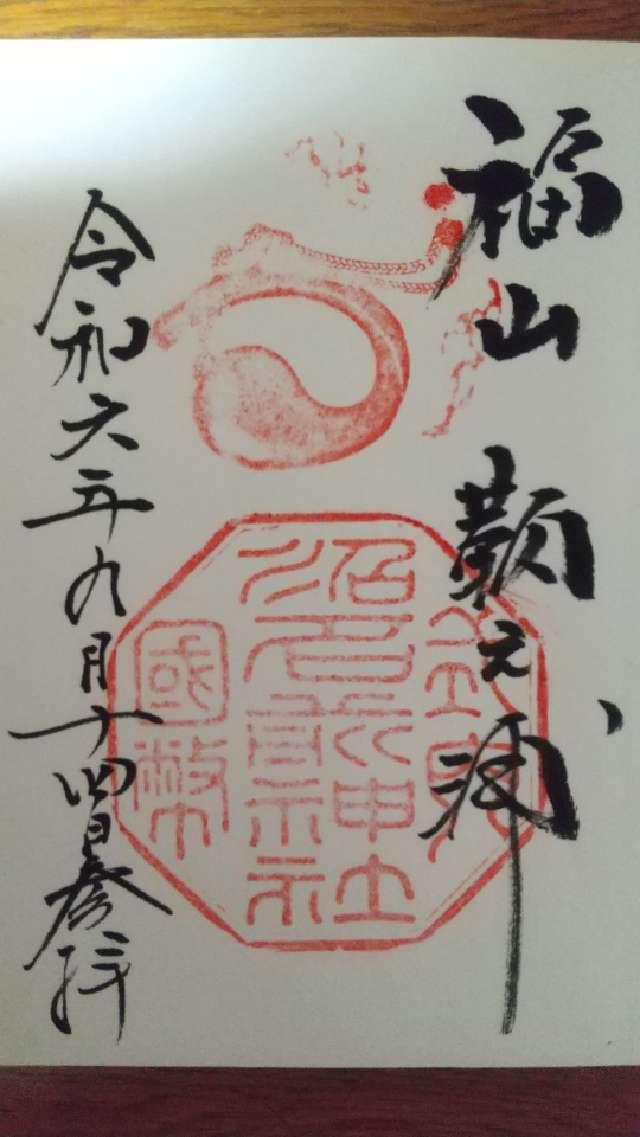 福山 鞆之浦
沼名前神社
國幣
令和六年九月十四日参拝